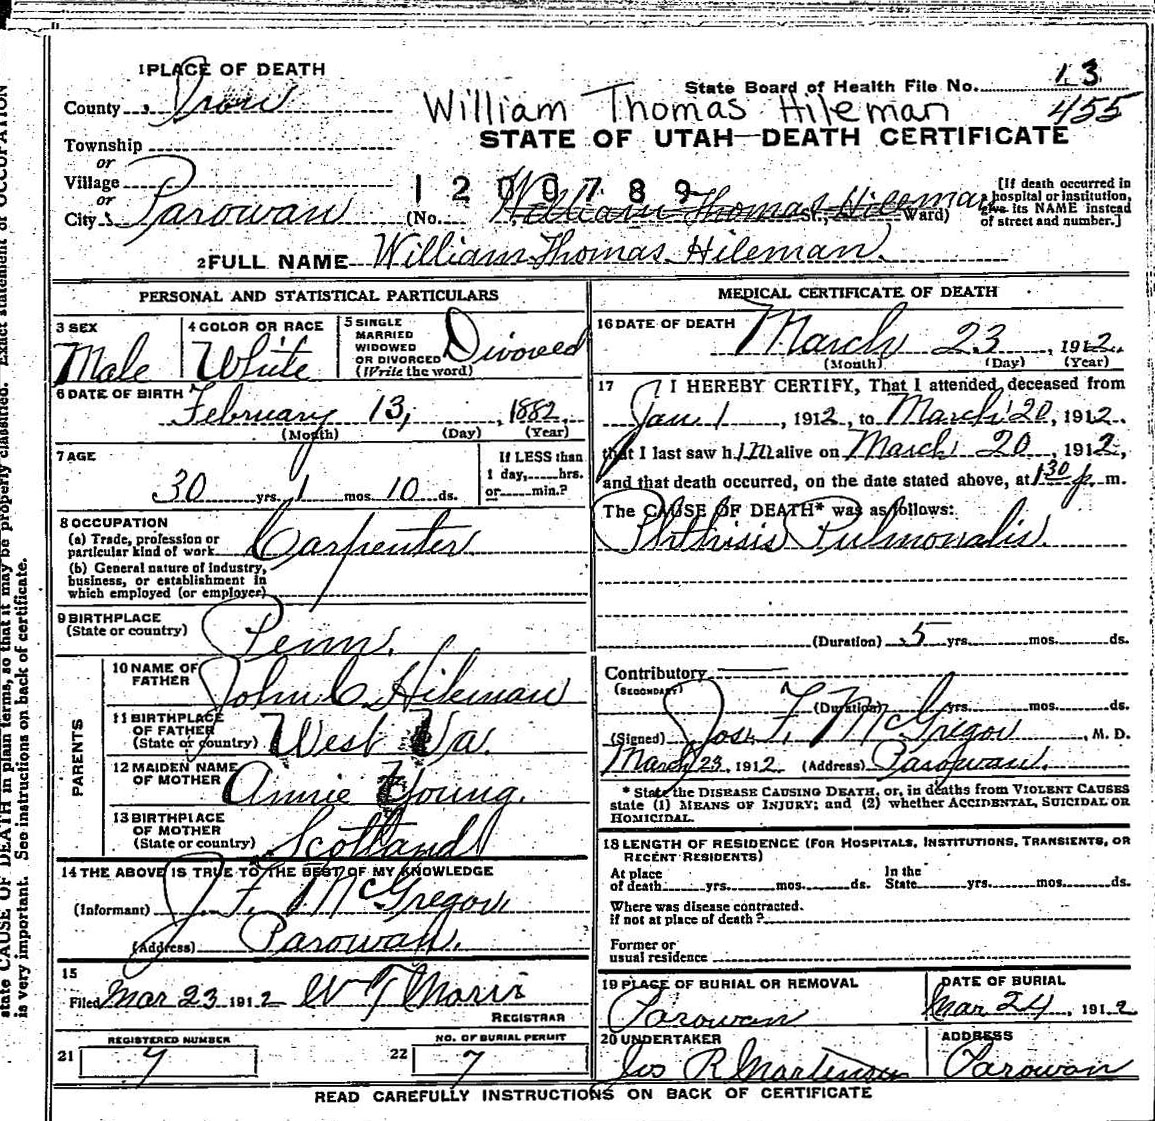 1 PLACE OF DEATH
County Iron
State Board of Health File No. 13
455
William Thomas Hileman
STATE OF UTAH—DEATH CERTIFICATE
Township
or
Village
or
City Parowan
1209789
(No. William Thomas Hileman St., Ward)
[If death occurred in
hospital or institution,
give its NAME instead
of street and number.]
2 FULL NAME William Thomas Hileman
PERSONAL AND STATISTICAL PARTICULARS
3 SEX
Male
4 COLOR OR RACE
White
5 SINGLE
MARRIED
WIDOWED
OR DIVORCED
(Write the word)
Divorced
6 DATE OF BIRTH
February 13, 1882
(Month) (Day) (Year)
7 AGE
30 yrs. 1 mos. 10 ds.
If LESS than
1 day, hrs.
or min.?
8 OCCUPATION
(a) Trade, profession or
particular kind of work Carpenter
(b) General nature of industry,
business, or establishment in
which employed (or employer)
9 BIRTHPLACE
(State or country) Penn.
PARENTS
10 NAME OF
FATHER
John C Hileman
11 BIRTHPLACE
OF FATHER
(State or country) West Va.
12 MAIDEN NAME
OF MOTHER
Annie Young.
13 BIRTHPLACE
OF MOTHER
(State or country) Scotland
14 THE ABOVE IS TRUE TO THE BEST OF MY KNOWLEDGE
(Informant) J. F. McGregor
(Address) Parowan.
15
Filed Mar 23 1912
REGISTRAR
REGISTERED NUMBER
21 7
NO. OF BURIAL PERMIT
22 7
MEDICAL CERTIFICATE OF DEATH
16 DATE OF DEATH
March 23, 1912.
(Month) (Day) (Year)
17 I HEREBY CERTIFY, That I attended deceased from
Jan 1, 1912, to March 20, 1912.
that I last saw him alive on March 20, 1912,
and that death occurred, on the date stated above, at 1 30 p. m.
The CAUSE OF DEATH* was as follows:
Phthisis Pulmonalis.
(Duration) 5 yrs. mos. ds.
Contributory
(SECONDARY)
(Duration) yrs. mos. ds.
(Signed) Jos. F. McGregor, M. D.
March 23, 1912 (Address) Parowan.
* State the DISEASE CAUSING DEATH, or, in deaths from VIOLENT CAUSES
state (1) MEANS OF INJURY; and (2) whether ACCIDENTAL, SUICIDAL OR
HOMICIDAL.
18 LENGTH OF RESIDENCE (FOR HOSPITALS, INSTITUTIONS, TRANSIENTS, OR
RECENT RESIDENTS)
At place
of death yrs. mos. ds.
In the
State yrs. mos. ds.
Where was disease contracted.
if not at place of death?
Former or
usual residence
19 PLACE OF BURIAL OR REMOVAL
Parowan
DATE OF BURIAL
Mar 24, 1912
20 UNDERTAKER
Jos R Mortensen
ADDRESS
Parowan
READ CAREFULLY INSTRUCTIONS ON BACK OF CERTIFICATE
state CAUSE OF DEATH in plain terms, so that it may be properly classified. Exact statement of OCCUPATION
is very important. See instructions on back of certificate.